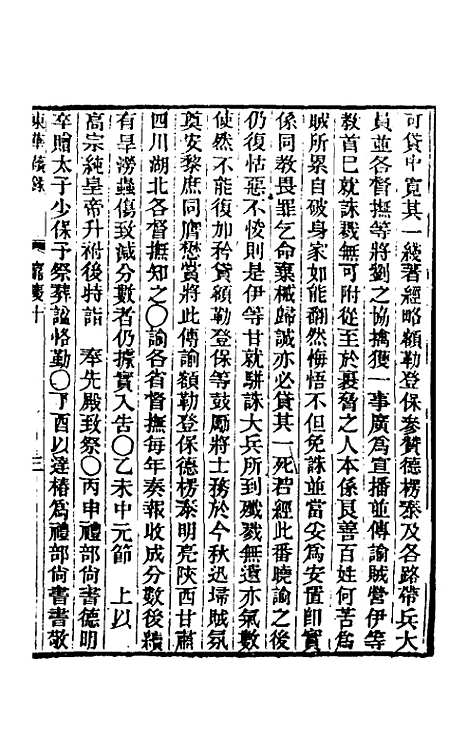 可貸中寬其一綫著經略額勒登保參贊德楞泰及各路帶兵大
員並各督撫等將劉之協擒獲一事廣爲宣播並傳諭賊營伊等
教首已就誅戮無可附從至於裹脅之人本係良善百姓何苦爲
賊所累自破身家如能翻然悔悟不但免誅並當妥爲安置卽實
係同教畏罪乞命棄械歸誠亦必貸其一死若經此番曉諭之後
仍復怙惡不悛則是伊等甘就駢誅大兵所到殲戮無遺亦氣數
使然不能復加矜貸額勒登保等鼓勵將士務於今秋迅埽賊氛
奠安黎庶同膺懋賞將此傳諭額勒登保德楞泰明亮陝西甘肅
四川湖北各督撫知之○諭各省督撫每年奏報收成分數後續
有旱澇蟲傷致減分數者仍據實入告○乙未中元節 上以
高宗純皇帝升祔後特詣 奉先殿致祭○丙申禮部尙書德明
卒贈太子少保予祭葬諡恪勤○丁酉以達椿爲禮部尙書書敬
東華續錄 嘉慶十 三